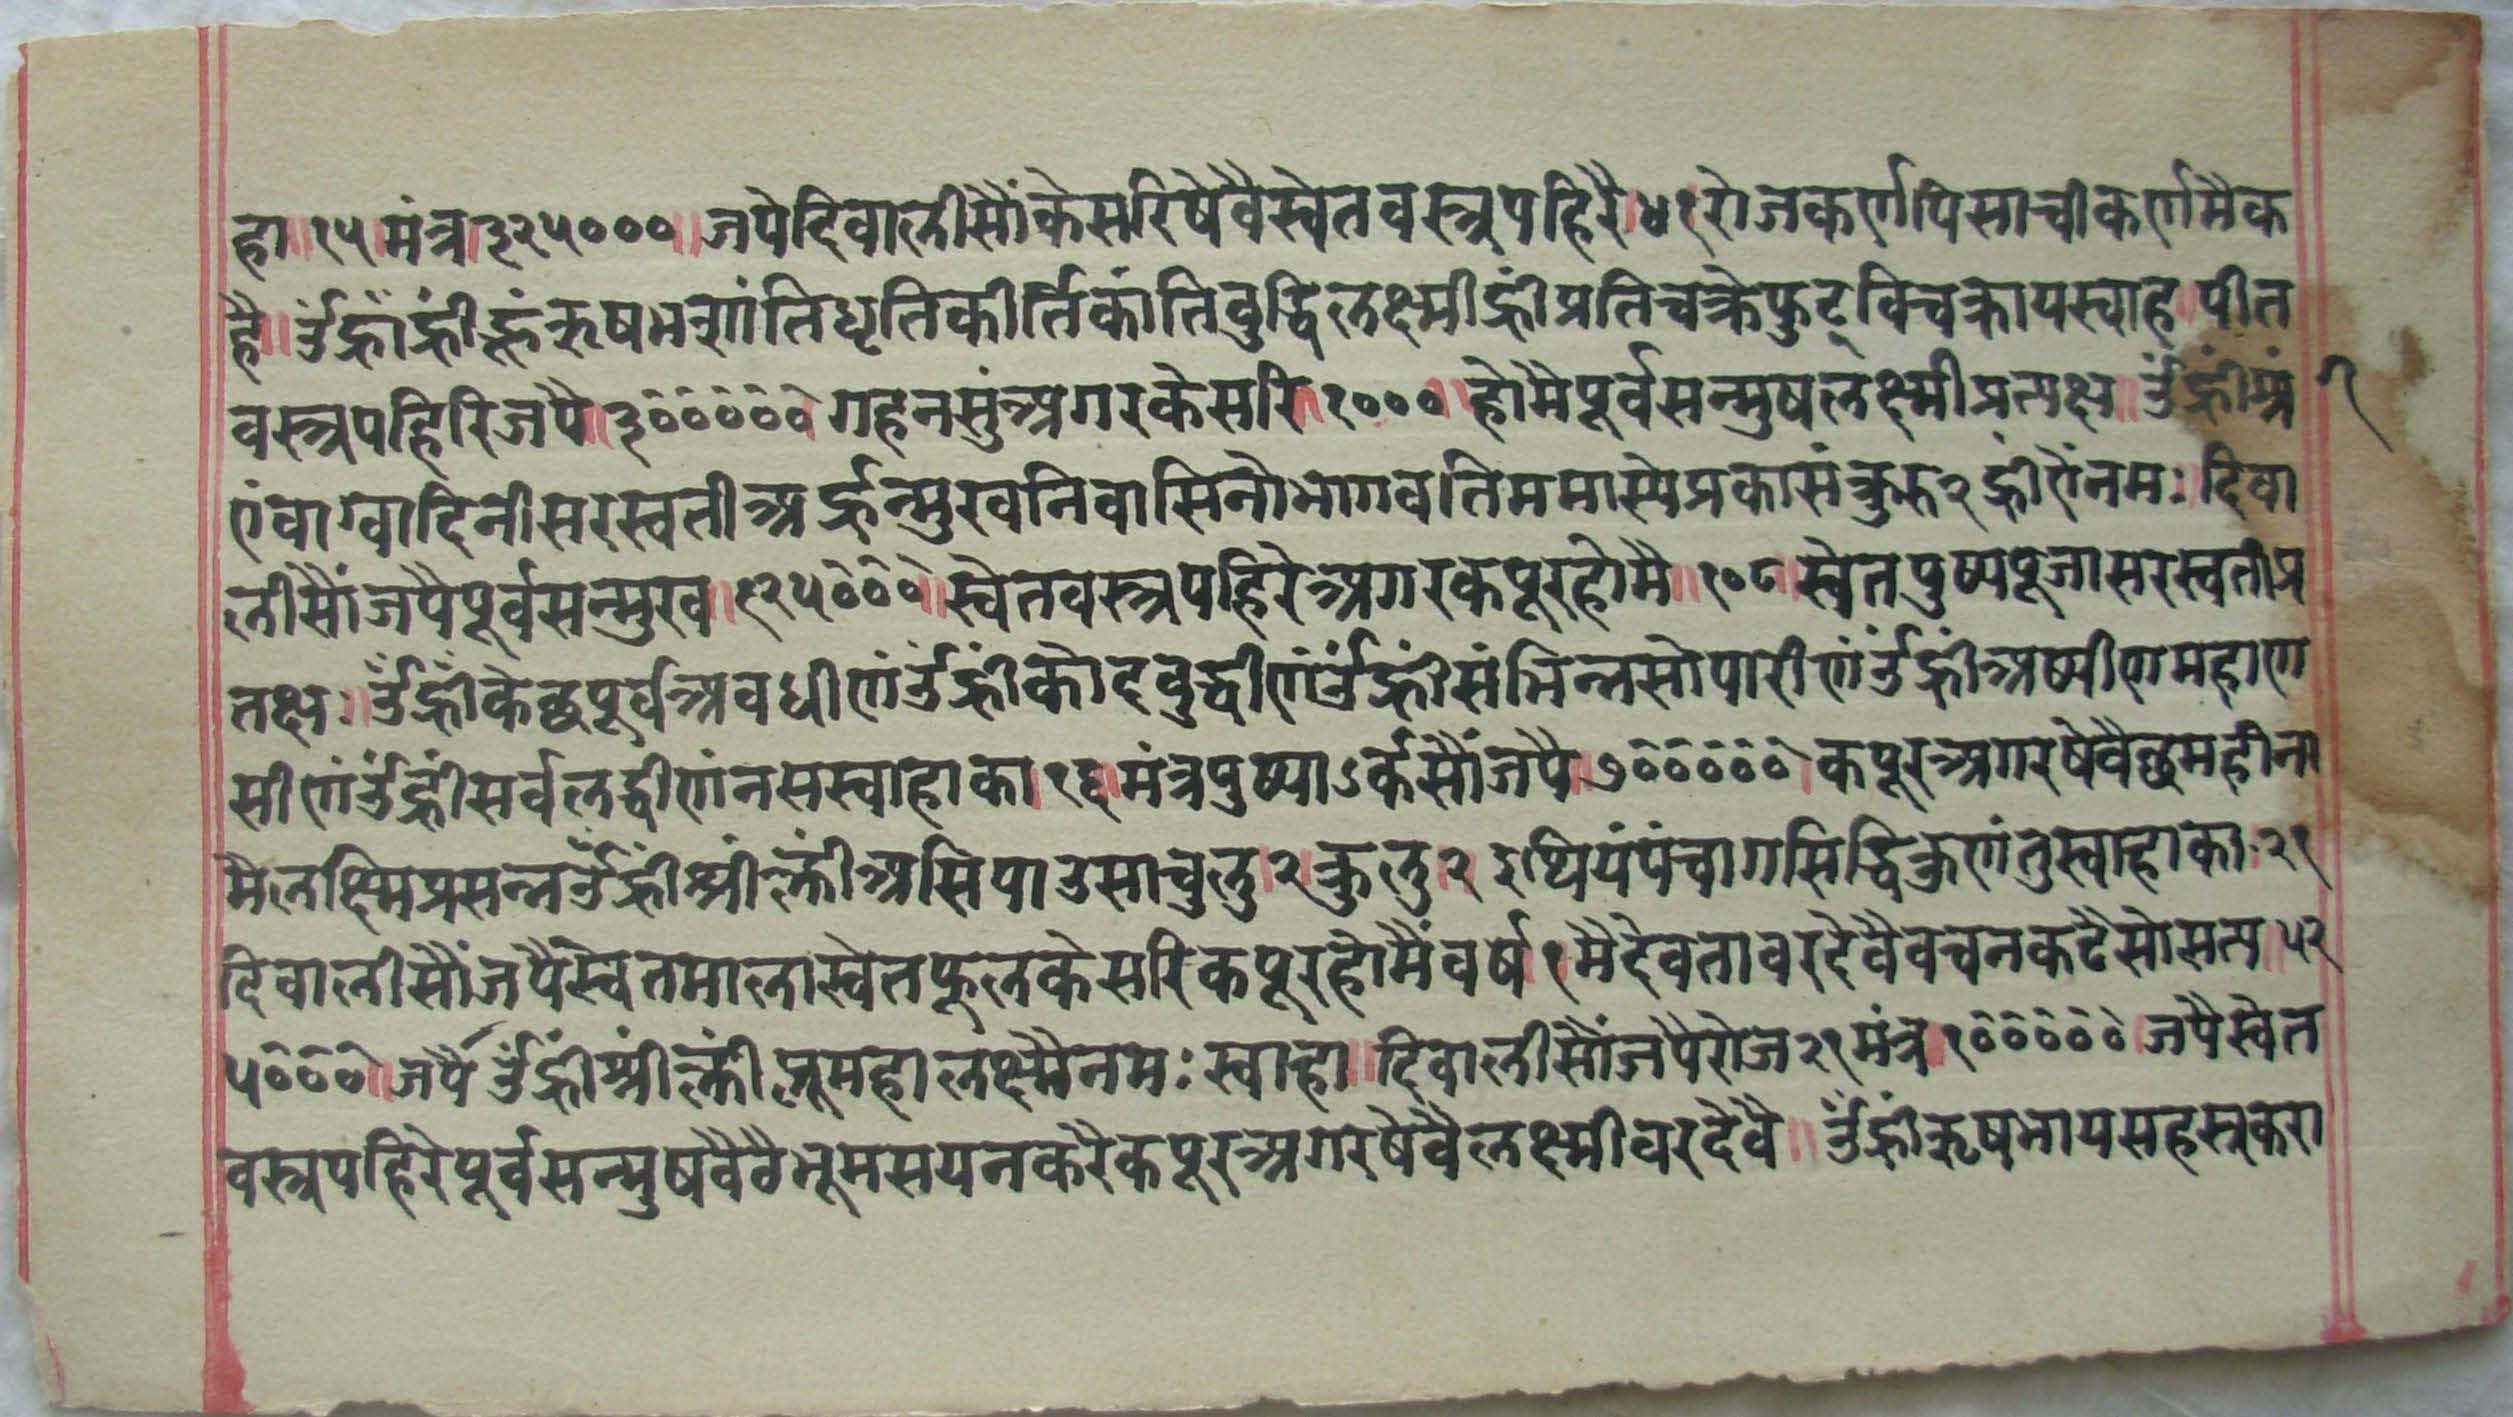 हा॥१५॥मंत्र॥३२५०००॥जपेदिवालीसौंकेसरिषेवैस्वेतवस्त्रपहिरै॥४१रोजकर्णपिसाचीकर्णमैक
है॥ॐह्रांह्रींह्रूंऋषभशांतिधृतिकीर्तिकांतिवुद्धिलक्ष्मीह्रींप्रतिचक्रेफुट्विचक्रायस्वाह॥पीत
वस्त्रपहिरिजपै॥३०००००।गहनसुंअगरकेसरि॥१०००॥होमैपूर्वसन्मुषलक्ष्मीप्रत्यक्ष॥ॐह्रींश्रं
एंवाग्वादिनीसरस्वतीअर्ह्रन्मुखवनिवासिनोभागवतिममास्येप्रकासंकुरु२ह्रींऐंनमः॥दिवा
लीसौंजपैपूर्वसन्मुख॥१२५०००॥स्वेतवस्त्रपहिरेअगरकपूरहोमै॥१०८॥स्वेतपुष्पपूजासरस्वतीप्र
तक्ष॥ॐह्रींकेछपूर्वअवधीणंॐह्रींकोदवुद्धीणंॐह्रींसंभिन्नसोपारीणंॐह्रींअष्पीणमहाण
सीणंॐह्रींसर्वलद्धीणंनसस्वाहाका॥१६॥मंत्रपुष्पाऽर्कसौंजपै॥७०००००।कपूरअगरषेवैछमहीना
मैलक्ष्मिप्रसन्नॐह्रींश्रींक्लींअसिपाउसाचुलु॥२॥कुलु॥२इथियंपंचागसिद्धिकुणंतुस्वाहाका॥२१
दिवालीसौंजपैस्वेतमालास्वेतफूलकेसरिकपूरहोमैंवर्ष॥१मैदेवतावरदेवैवचनकढैसोसत्य॥५२
५०००॥जपैॐह्रींश्रींक्लींब्लूमहालक्ष्मैनमःस्वाहा॥दिवालीसौंजपैरोज२१मंत्र॥१०००००॥जपैस्वेत
वस्त्रपहिरेपूर्वसन्मुषवैठैभूमसयनकरैकपूरअगरषेवैलक्ष्मीवरदेवै॥ॐह्रींऋषभायसहस्त्रकरा